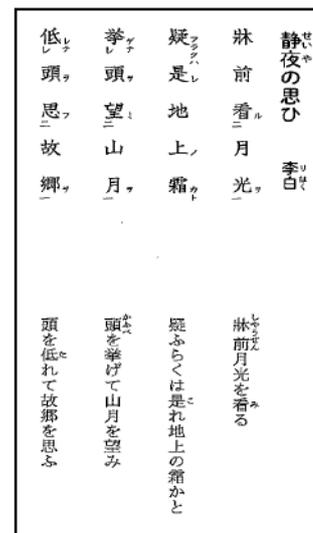 静夜の思ひ 李白
牀前看月光
疑是地上霜
挙頭望山月
低頭思故郷
牀前月光を看る
疑ふらくは是れ地上の霜かと
頭を挙げて山月を望み
頭を低れて故郷を思ふ